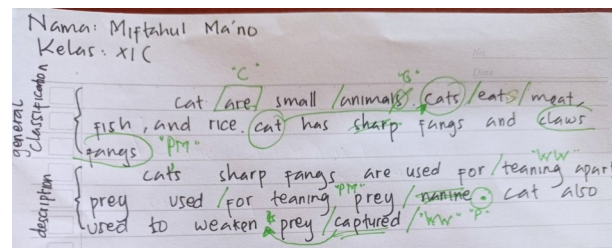 Nama: Miftahul Ma'no
Kelas: XI C
"C" "G"
general classification
cat are small /animals. cats/eats/meat,
fish, and rice. cat has sharp fangs and claws
fangs "PM"
"WW"
description
cats sharp fangs are used for /teaning apar
"PM"
prey used /for teaning prey / cat also
used to weaken prey /captured / "WW" "P"